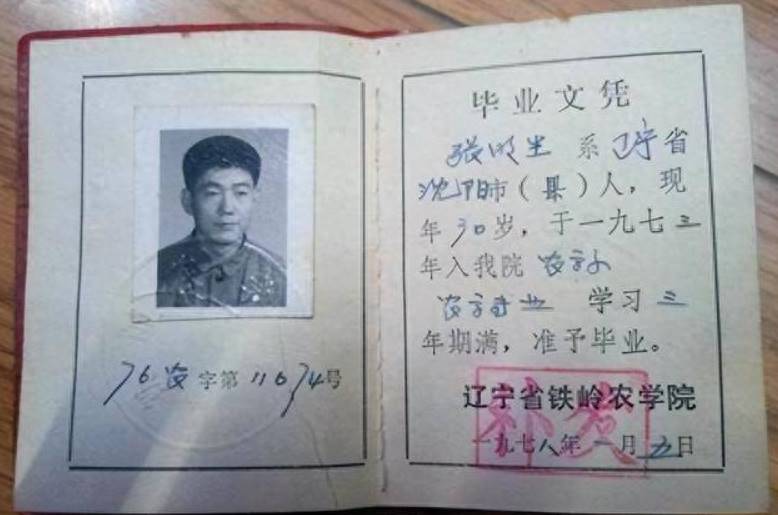 76农字第11674号
毕业文凭
张明生 系 辽宁省
沈阳市(县)人，现
年30岁，于一九七三
年入我院 农学系
农学专业 学习 三
年期满，准予毕业。
辽宁省铁岭农学院
一九七八年一月五日
补发